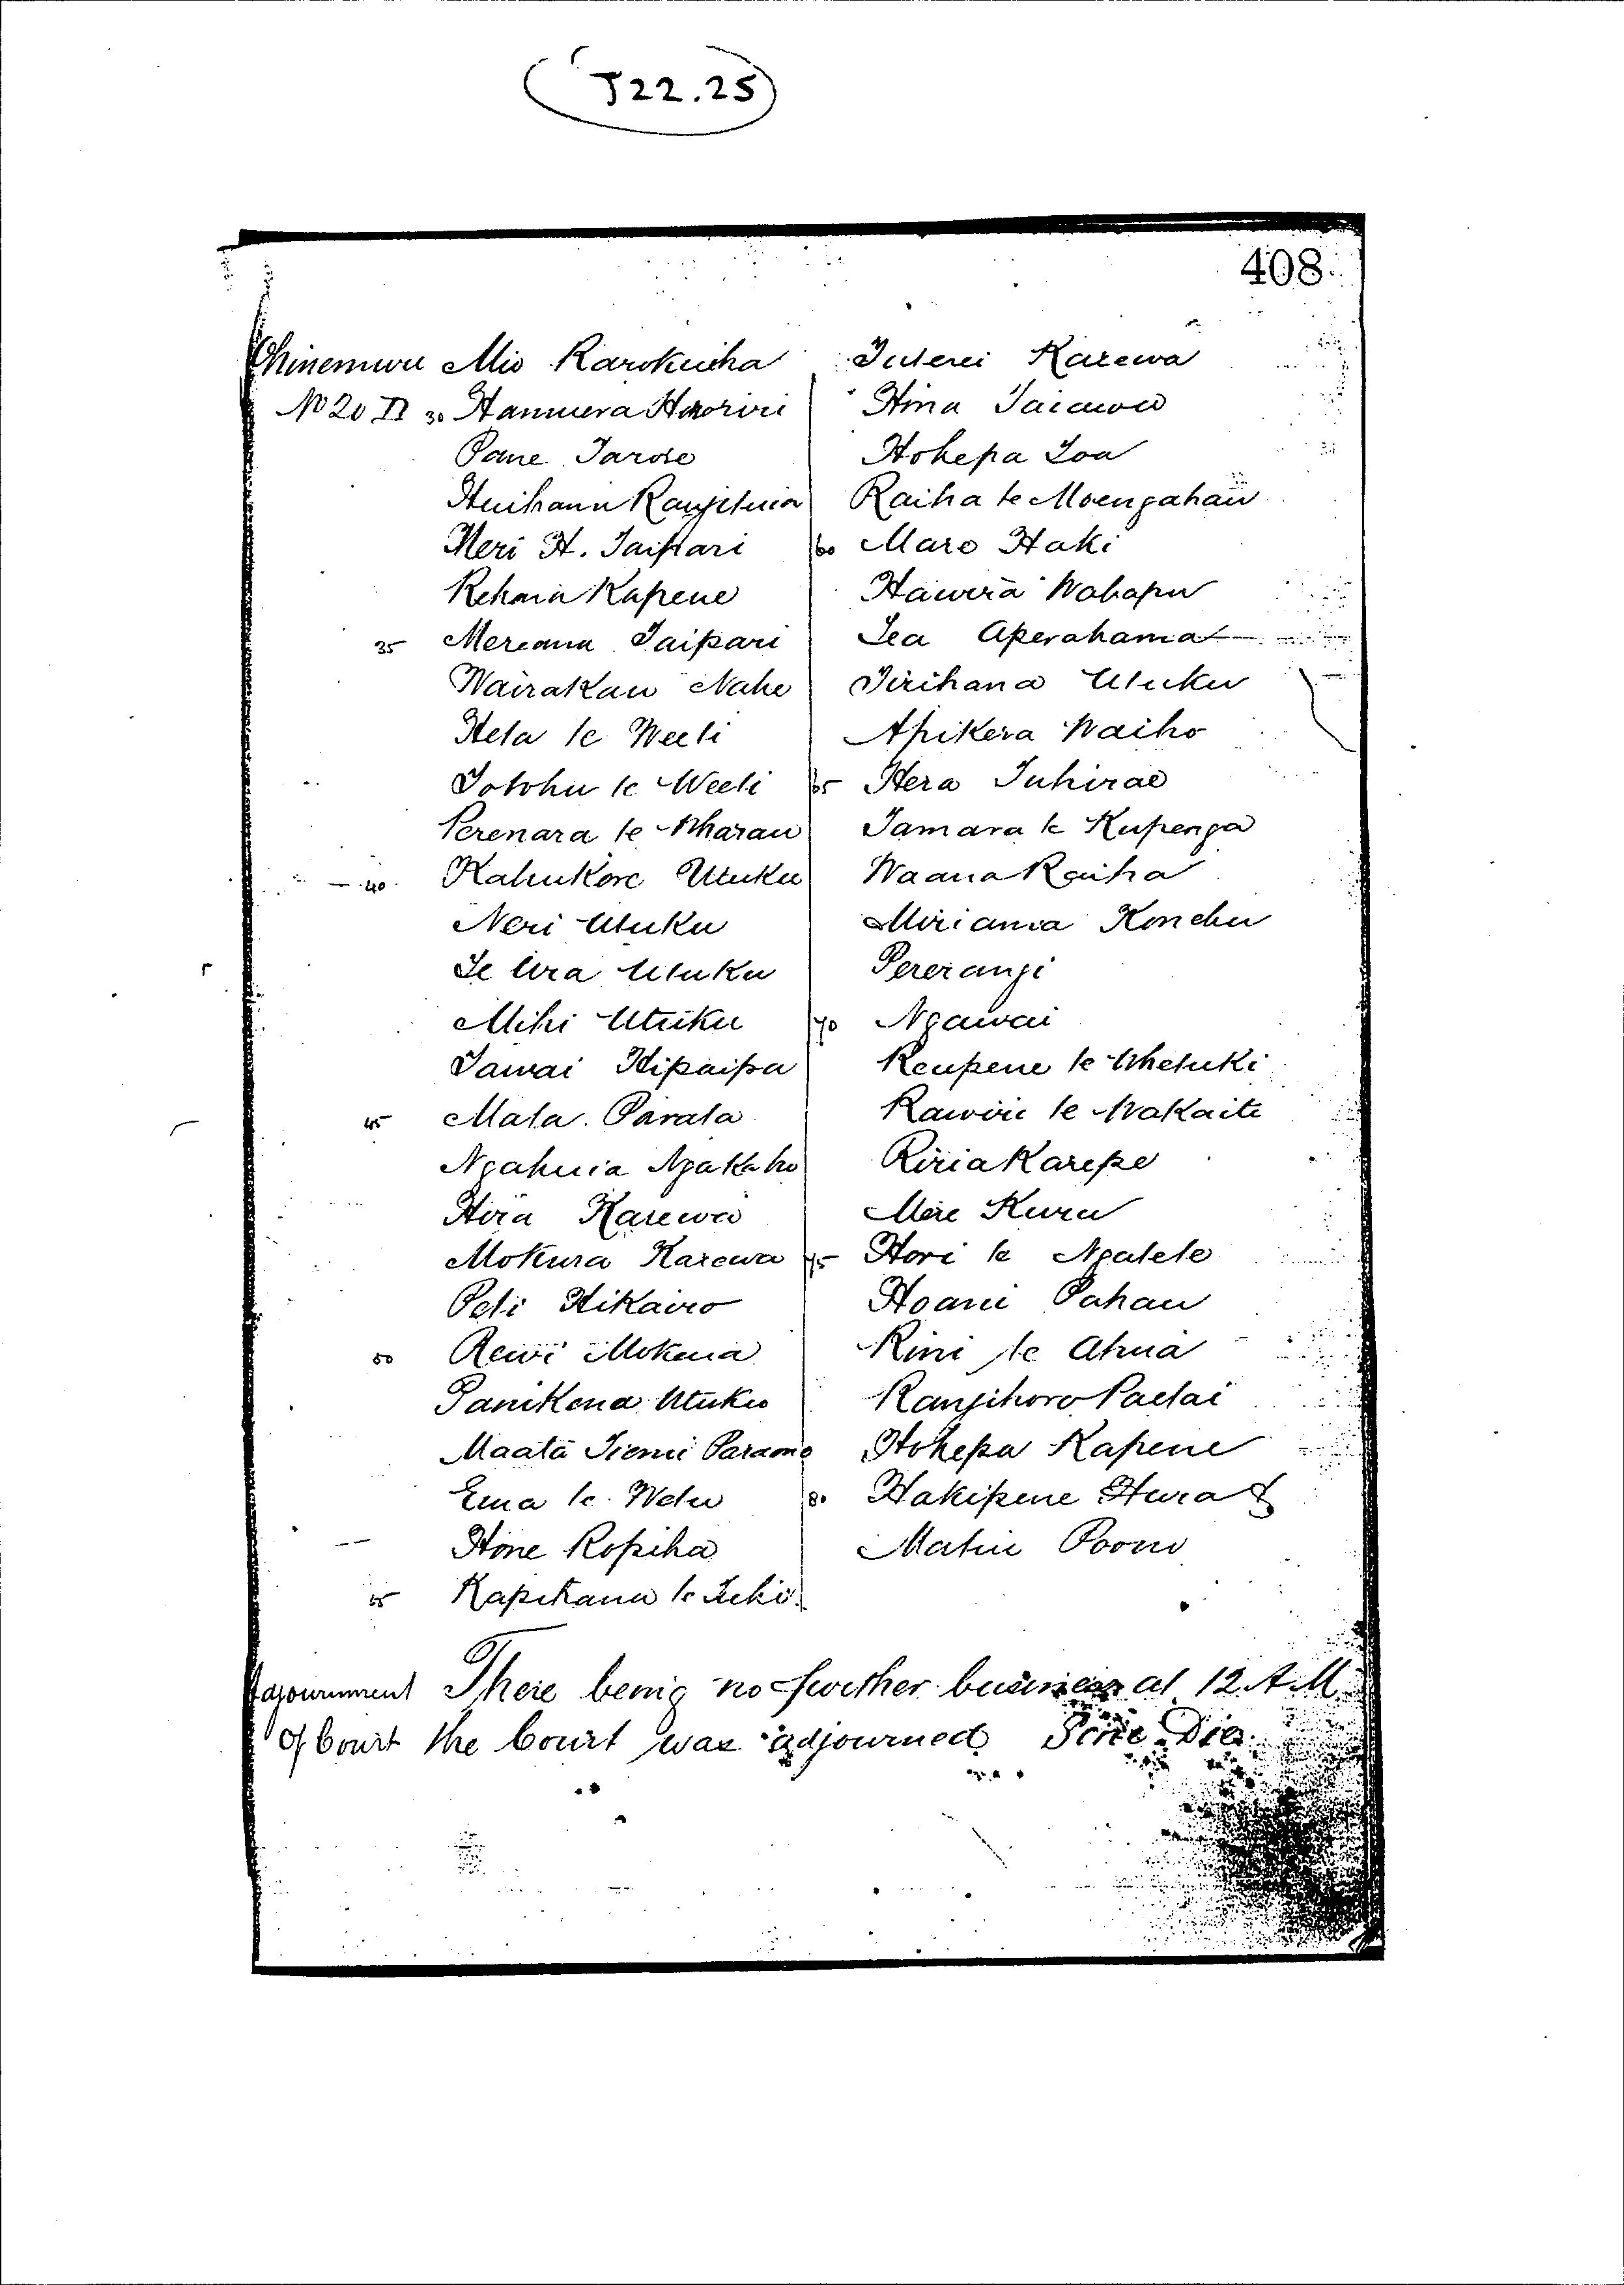 J22.25
408.
Ohinemuri Mio Karokueha Tuterei Karewa
No 20 II 30 Hamuera Hororiri Hina Taiawa
Pane Tarose Hohepa Toa
Huihana Rangituia Raiha te Moengahau
Meri H. Taipari 60 Mare Haki
Rehaia Kapene Hawira Wahapu
35 Mereana Taipari Tea Aperahama
Wairakau Nahe Tirihana Utuku
Heta te Weeti Apikera Waiho
Totohu te Weeti 65 Hera Tuhirae
Perenara te Wharau Tamara te Kupenga
40 Kahukore Utuku Waana Raiha
Neri Utuku Miriama Konehu
Te Ura Utuku Pererangi
Mihi Utuku 70 Ngawai
Tawai Hipaipa Reupene te Whetuki
45 Mata Parata Rawiri te Wakaiti
Ngahuia Ngakaho Riria Karepe
Hira Karewa Mere Kuru
Mokura Karewa 75 Hori te Ngatete
Peti Hikairo Hoani Pahau
50 Rewi Mokena Rini te Ahua
Panikena Utuku Rangihoro Paetai
Maata Tiemi Paramo Hohepa Kapene
Ema te Wetu 80 Hakipene Hura &
Hone Ropiha Matiu Poono
55 Kapihana te Tuhi
Adjournment There being no further business at 12 A.M.
of Court the Court was adjourned Sine Die.